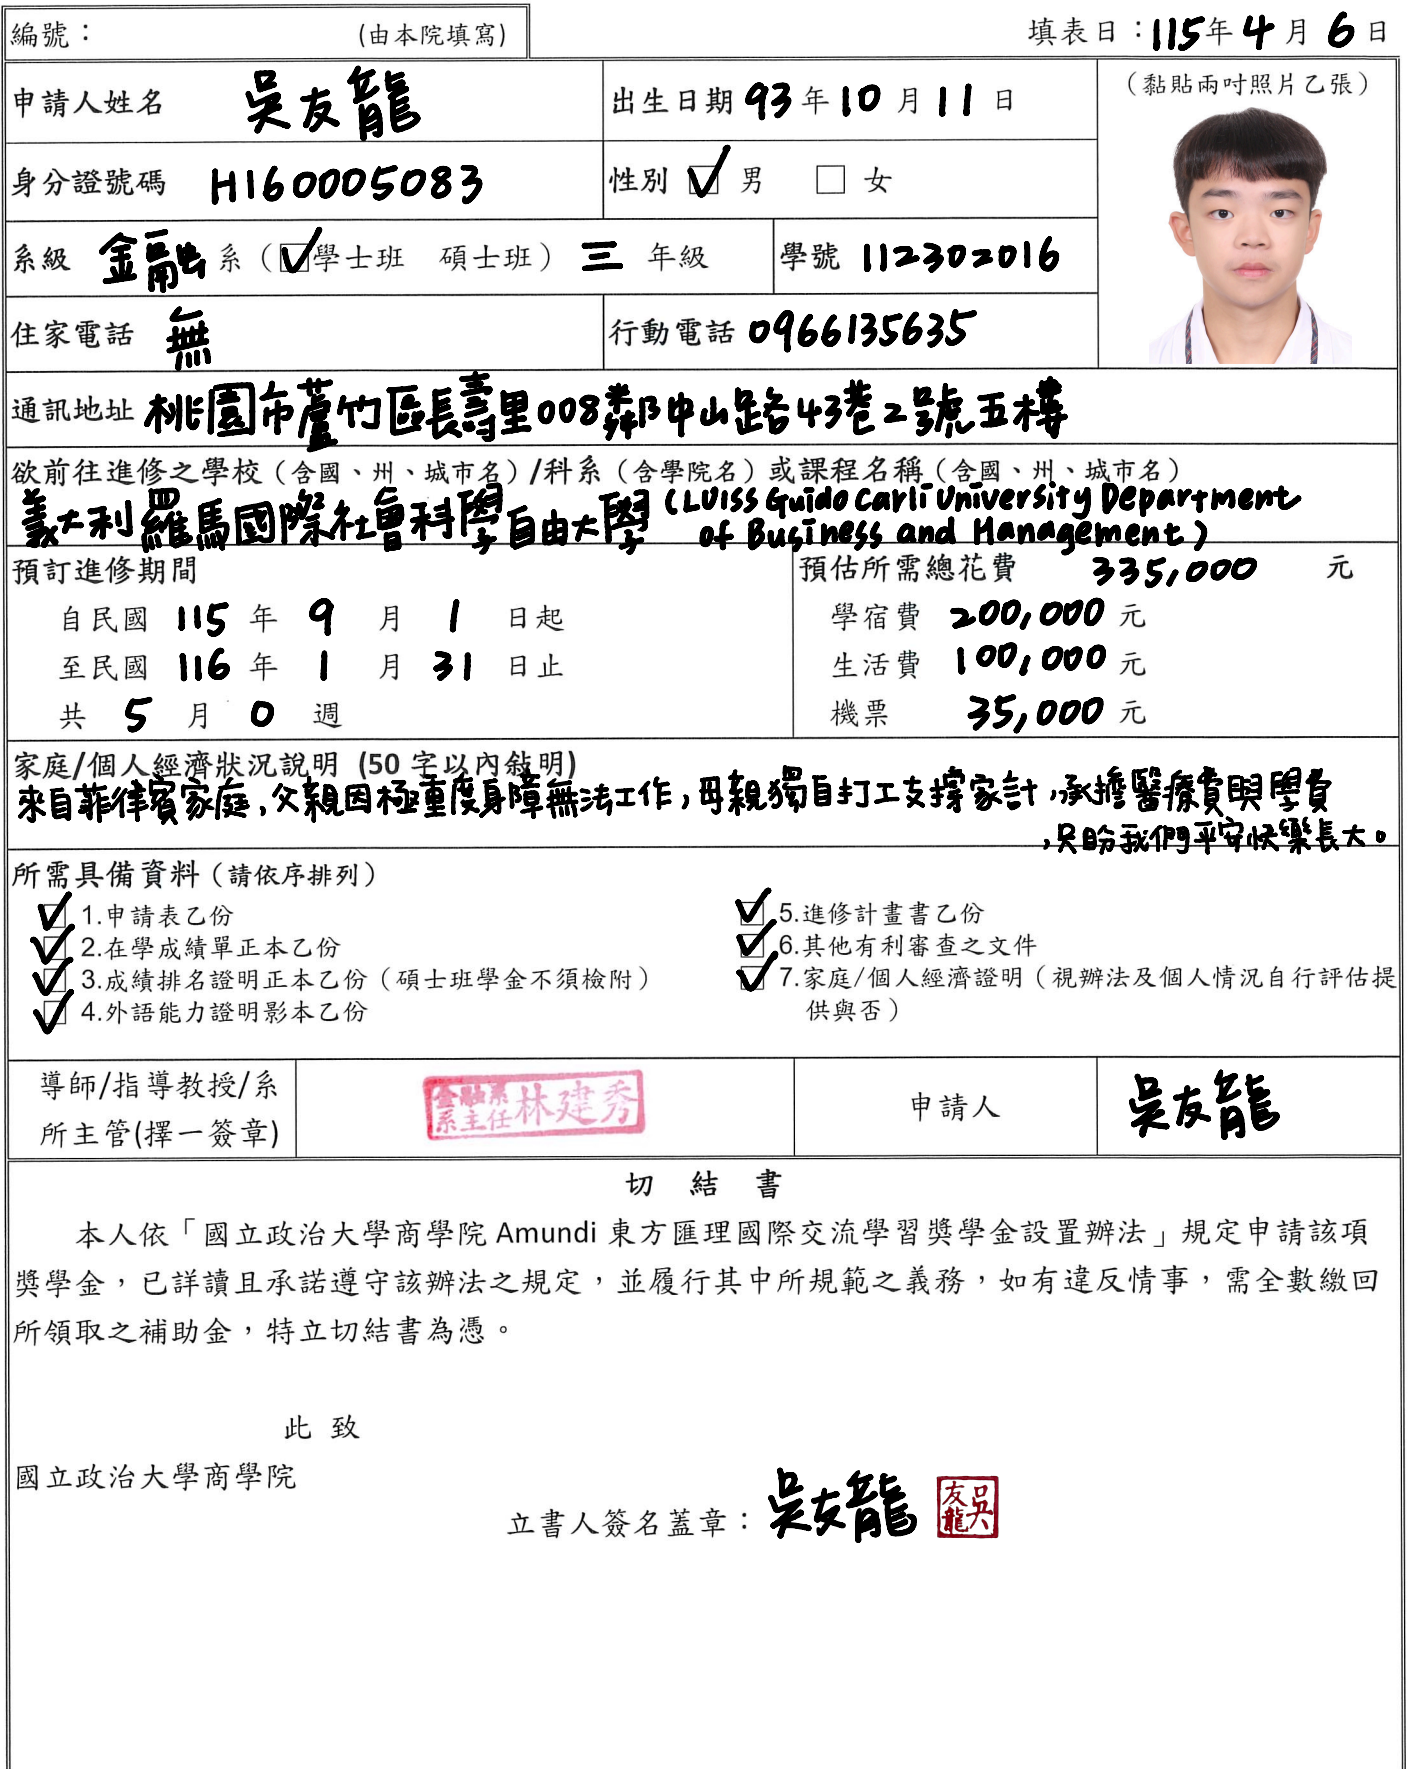 編號：　(由本院填寫)
填表日：115年4月6日
申請人姓名　吳友龍　出生日期 93年10月11日　（黏貼兩吋照片乙張）
身分證號碼　H160005083　性別 ☑ 男　□ 女
系級　金融系（☑學士班　碩士班）三 年級　學號 112302016
住家電話　無　行動電話 0966135635
通訊地址 桃園市蘆竹區長壽里008鄰中山路43巷2號五樓
欲前往進修之學校（含國、州、城市名）/科系（含學院名）或課程名稱（含國、州、城市名）
義大利羅馬國際社會科學自由大學 (LUISS Guido Carli University Department
of Business and Management)
預訂進修期間　預估所需總花費 335,000 元
自民國 115 年 9 月 1 日起　學宿費 200,000 元
至民國 116 年 1 月 31 日止　生活費 100,000 元
共 5 月 0 週　機票 35,000 元
家庭/個人經濟狀況說明 (50 字以內敍明)
來自菲律賓家庭,父親因極重度身障無法工作,母親獨自打工支撐家計,承擔醫療費與學費
,只盼我們平安快樂長大。
所需具備資料（請依序排列）
☑ 1.申請表乙份　☑ 5.進修計畫書乙份
☑ 2.在學成績單正本乙份　☑ 6.其他有利審查之文件
☑ 3.成績排名證明正本乙份（碩士班學金不須檢附）　☑ 7.家庭/個人經濟證明（視辦法及個人情況自行評估提
☑ 4.外語能力證明影本乙份　供與否）
導師/指導教授/系
所主管(擇一簽章)　金融系系主任林建秀　申請人　吳友龍
切 結 書
本人依「國立政治大學商學院 Amundi 東方匯理國際交流學習獎學金設置辦法」規定申請該項
獎學金，已詳讀且承諾遵守該辦法之規定，並履行其中所規範之義務，如有違反情事，需全數繳回
所領取之補助金，特立切結書為憑。
此 致
國立政治大學商學院
立書人簽名蓋章：吳友龍　吳友龍